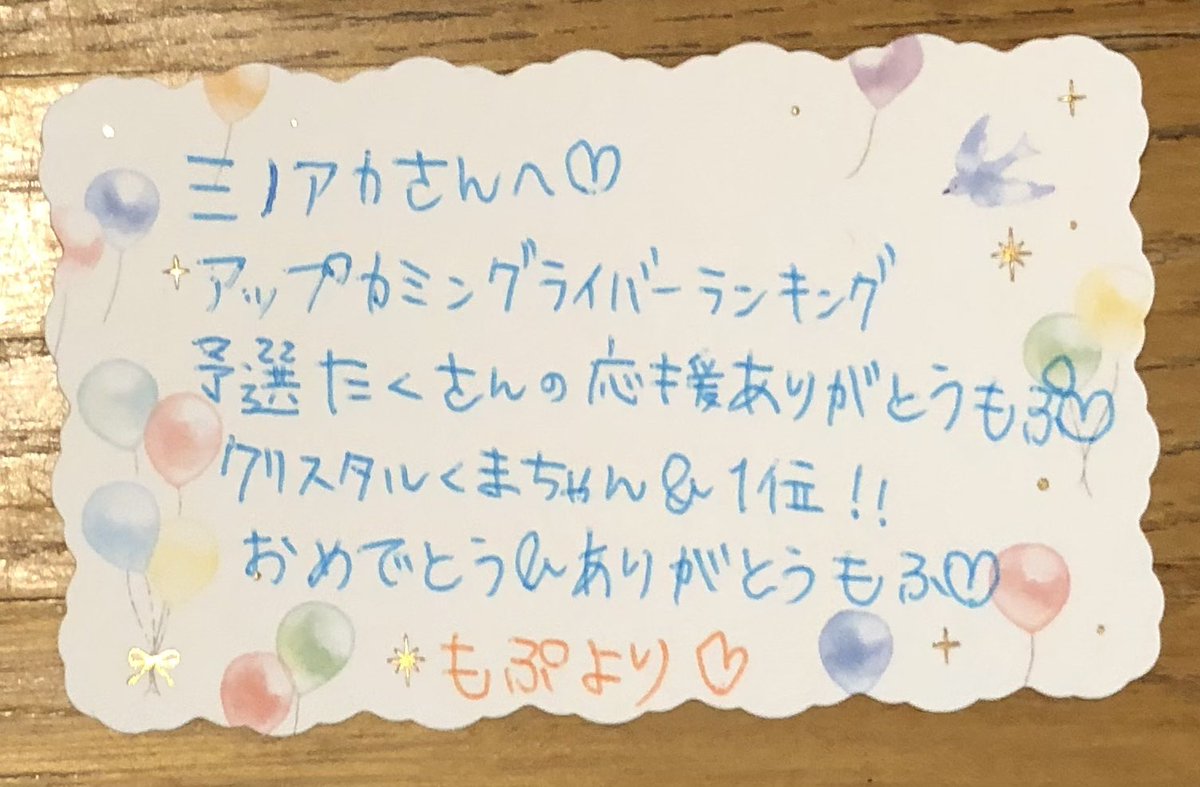 ミノアカさんへ♡
アップカミングライバーランキング
予選たくさんの応援ありがとうもぷ♡
クリスタルくまちゃん&1位!!
おめでとう&ありがとうもふ♡
もぷより♡